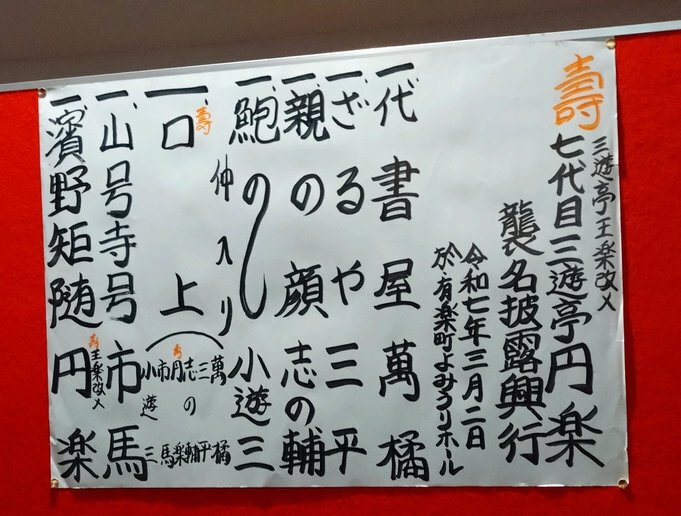 壽
三遊亭王楽改メ
七代目三遊亭円楽
襲名披露興行
令和七年三月二日
於有楽町よみうりホール
一、代書屋 萬橘
一、ざるや 三平
一、親の顔 志の輔
一、鮑のし 小遊三
仲入り
一、壽口上
萬橘
三平
志の輔
壽円楽
市馬
小遊三
一、山号寺号 市馬
一、濱野矩随 壽王楽改メ円楽